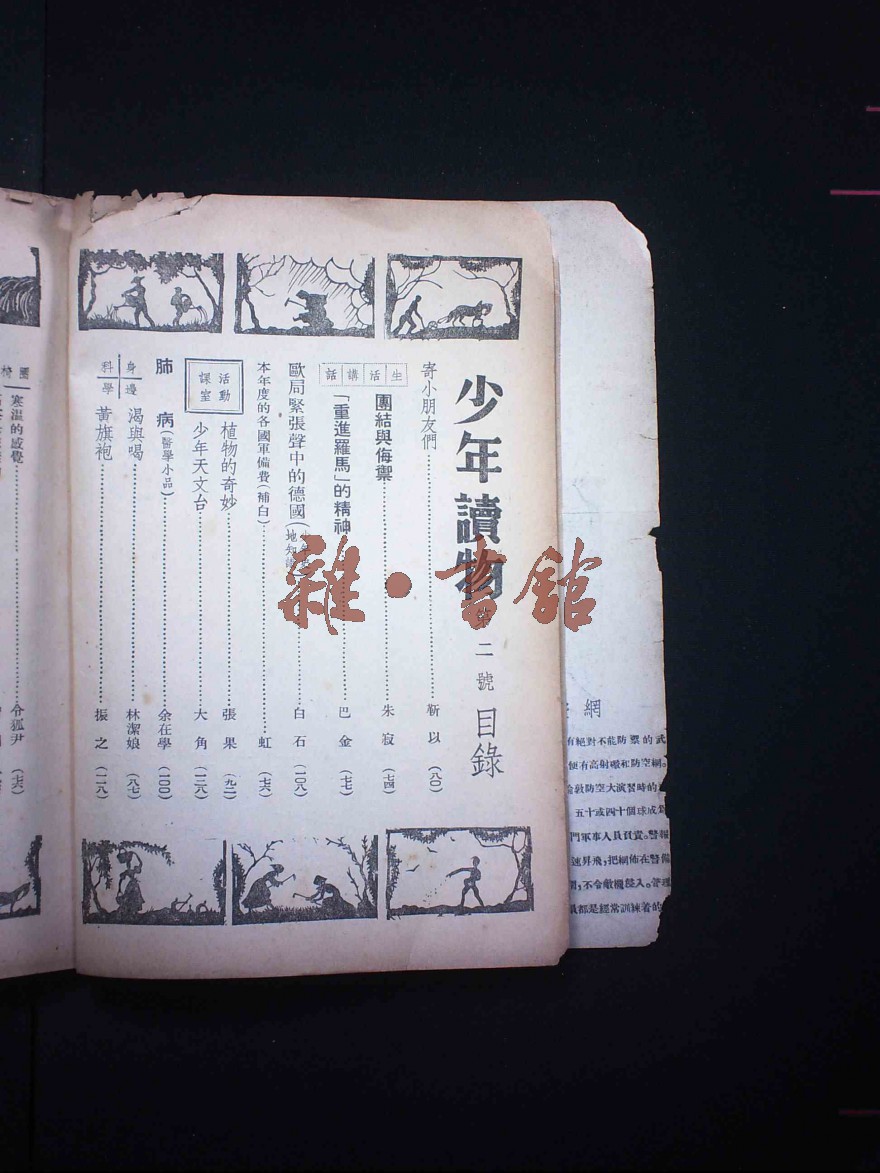 少年讀物 第二號 目錄
寄小朋友們 靳以 (八〇)
生活講話
團結與侮禦 朱寂 (七四)
「重進羅馬」的精神 巴金 (七七)
歐局緊張聲中的德國 白石 (一〇八)
本年度的各國軍備費(補白) 虹 (七六)
活動課室
植物的奇妙 張果 (九二)
少年天文台 大角 (一三八)
肺病(醫學小品) 余在學 (一〇〇)
身邊科學
渴與喝 林潔娘 (八七)
黃旗袍 振之 (一一八)
寒溫的感覺 令狐尹
雜·書館
網
有絕對不能防禦的武
便有高射礮和防空網。
倫敦防空大演習時的
五十或四十個球成
門軍事人員負責。警報
速昇飛,把網佈在警備
不令敵機侵入。管理
員都是經常訓練着的